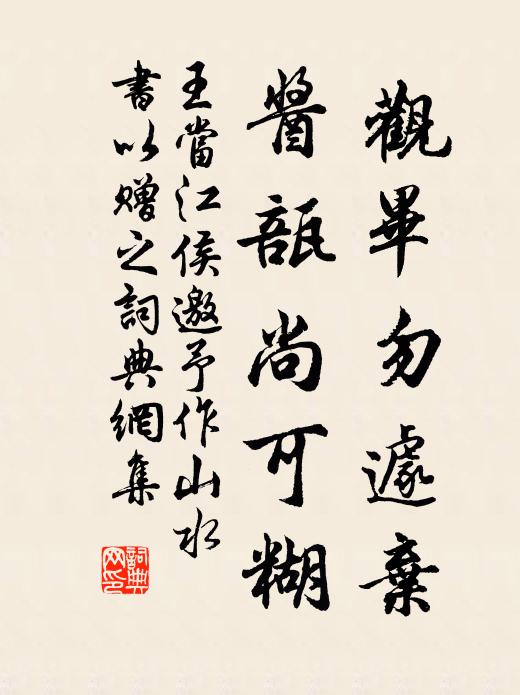 觀畢勿遽棄
醬瓿尚可糊
王當江侯邀予作山水
書以贈之詞典網集
詞典
网印